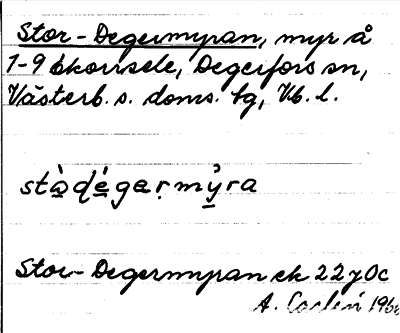 Stor-Degermyran, myr å
1-9 Ekorrsele, Degerfors sn,
Västerb. s. doms. tg, Vb. l.
stò̱ḍé̱gaṛmỳ̱ra
Stor-Degermyran ek 22 y 0c
A.